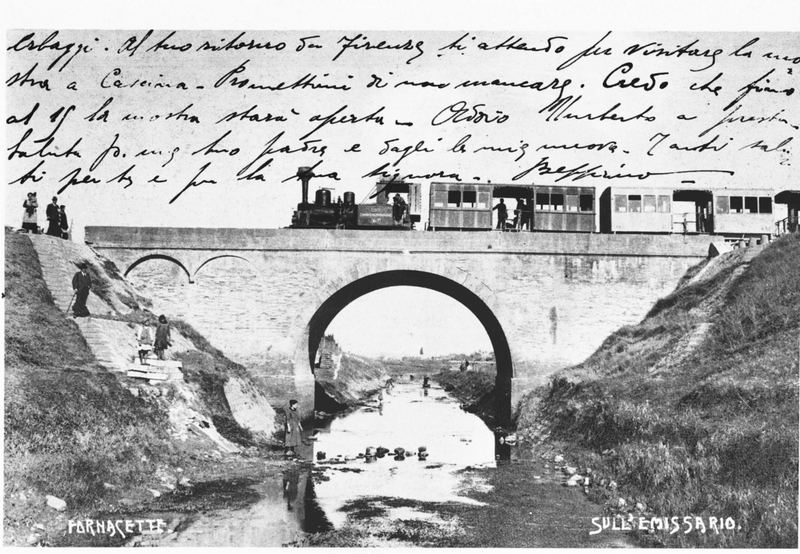 Erbaggi. Al tuo ritorno da Firenze ti attendo per visitare la mo
stra a Cascina - Promettimi di non mancare. Credo che fino
al 15 la mostra starà aperta - Addio Umberto a presto.
Saluta p. me tuo padre e dagli le mie nuove. Tanti salu
ti per te e per la tua signora. Beppino
FORNACETTE
SULL'EMISSARIO.